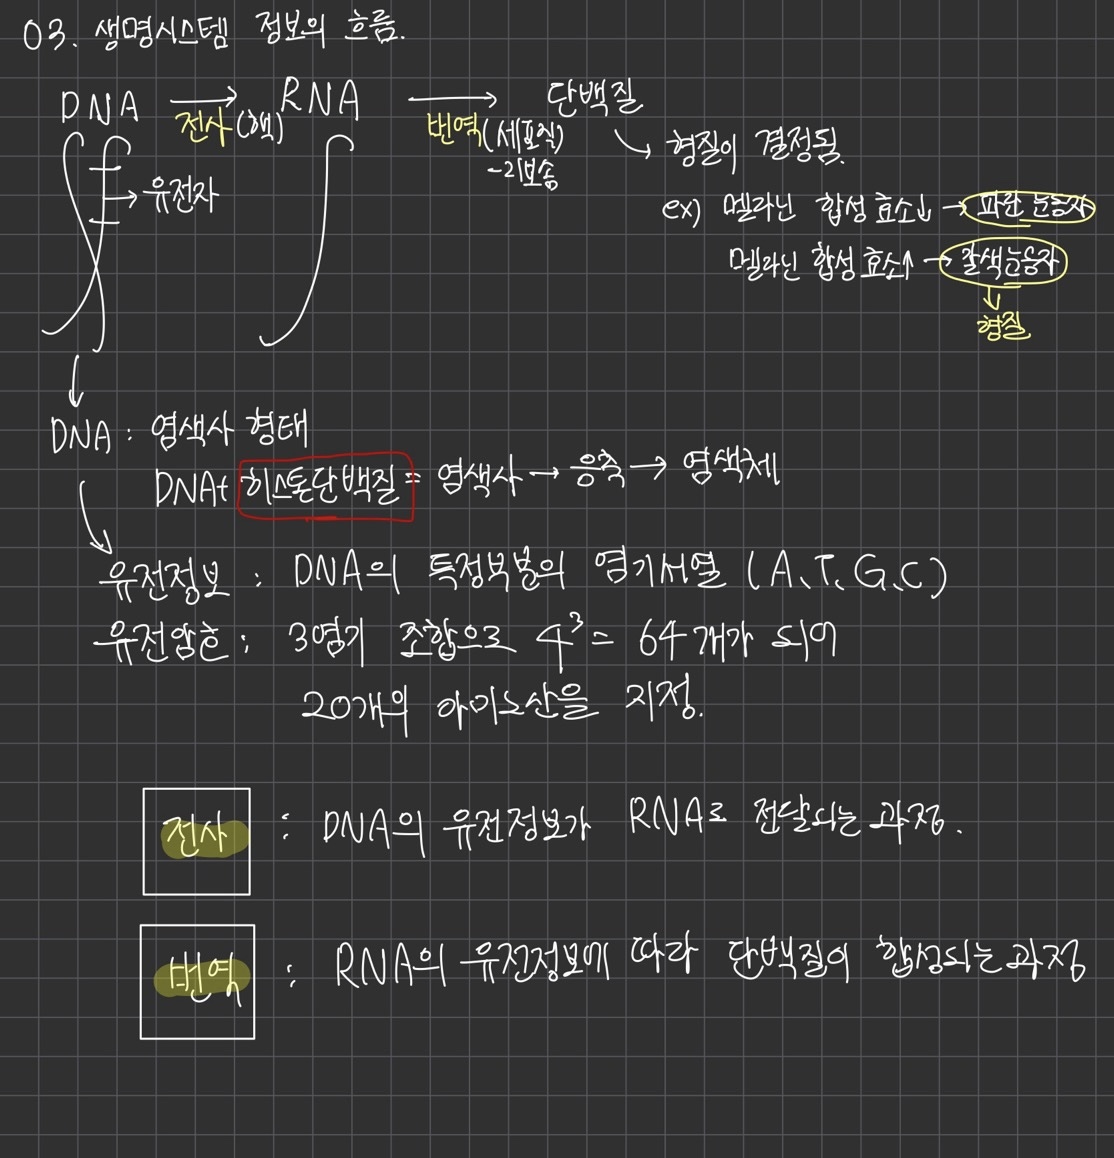 03. 생명시스템 정보의 흐름.
DNA → RNA → 단백질
전사(핵) 번역(세포질)
-리보솜
↘ 형질이 결정됨.
→ 유전자
ex) 멜라닌 합성 효소↓ → 파란 눈동자
멜라닌 합성 효소↑ → 갈색눈동자
↓
형질
↓
DNA : 염색사 형태
DNA+ 히스톤단백질 = 염색사 → 응축 → 염색체
유전정보 : DNA의 특정부분의 염기서열 (A、T、G、C)
유전암호 : 3염기 조합으로 4³ = 64개가 되어
20개의 아미노산을 지정.
전사 : DNA의 유전정보가 RNA로 전달되는 과정.
번역 : RNA의 유전정보에 따라 단백질이 합성되는 과정